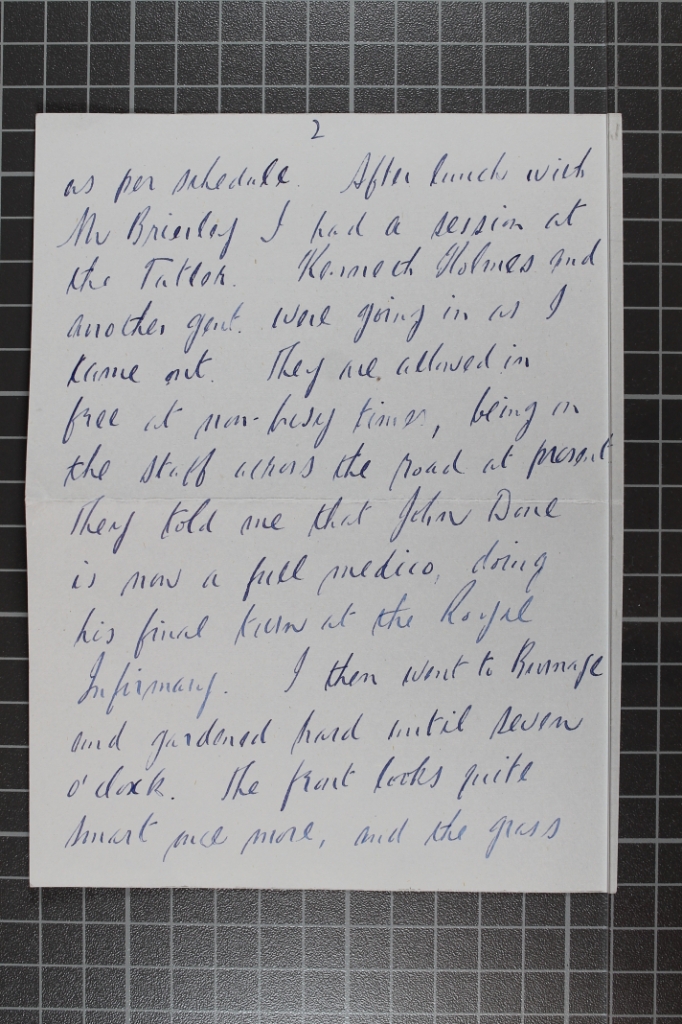 2
as per schedule. After lunch with
Mr Brierley I had a session at
the Tatler. Kenneth Holmes and
another gent. were going in as I
came out. They are allowed in
free at non-busy times, being on
the staff across the road at present
They told me that John Dane
is now a full medico, doing
his final turn at the Royal
Infirmary. I then went to Burnage
and gardened hard until seven
o'clock. The front looks quite
smart once more, and the grass